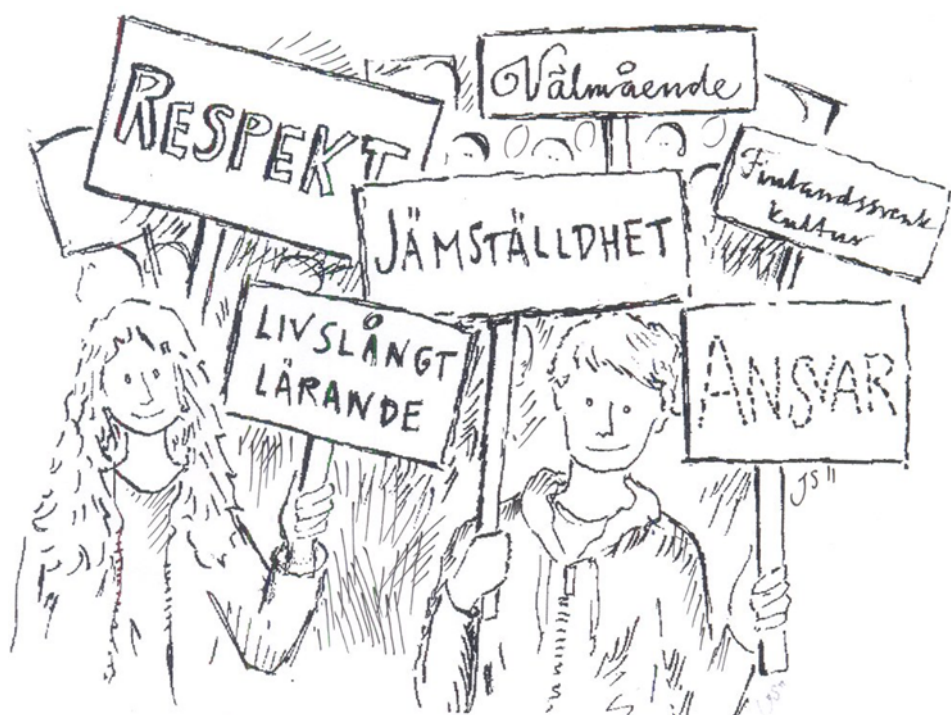 RESPEKT
Välmående
Finlandssvensk
kultur
JÄMSTÄLLDHET
LIVSLÅNGT
LÄRANDE
ANSVAR
JS11